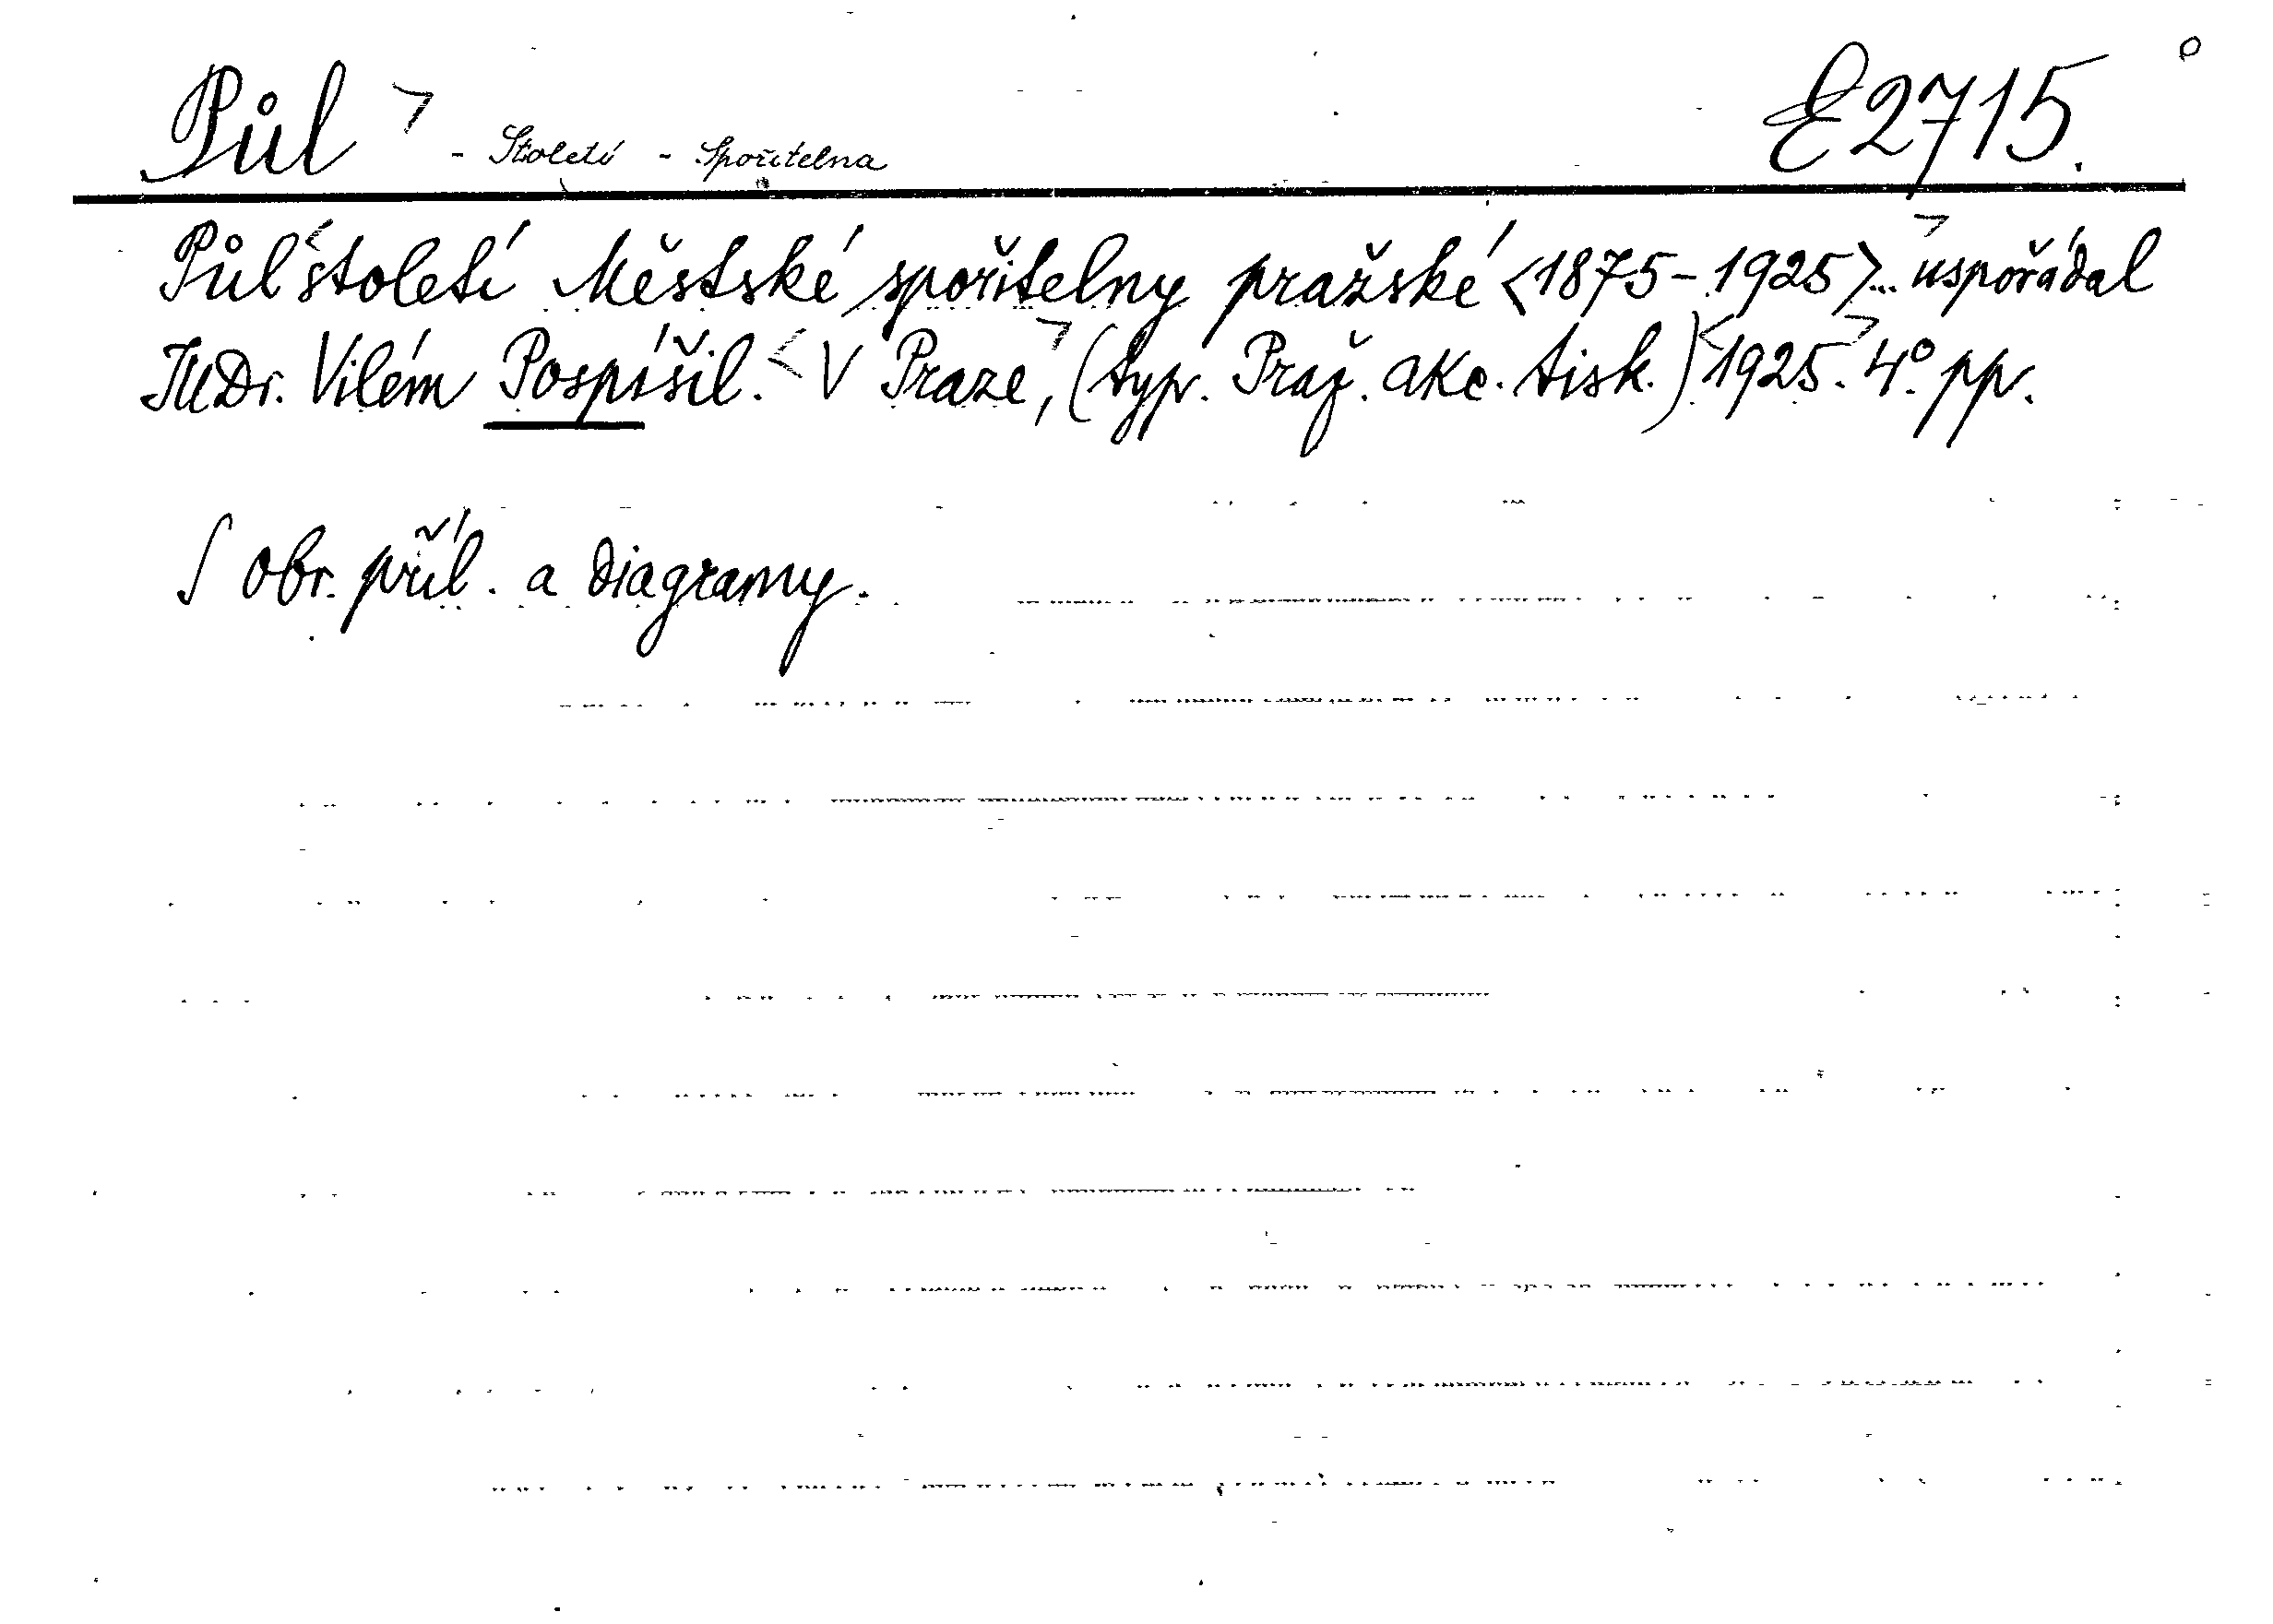 Půl - Století - Spořitelna E 2715.
Půl století Městské spořitelny pražské <1875-1925>... uspořádal
JUDr. Vilém Pospíšil. V Praze, (typ. Praž. akc. tisk.) 1925. 4° pp.
S obr. příl. a diagramy.